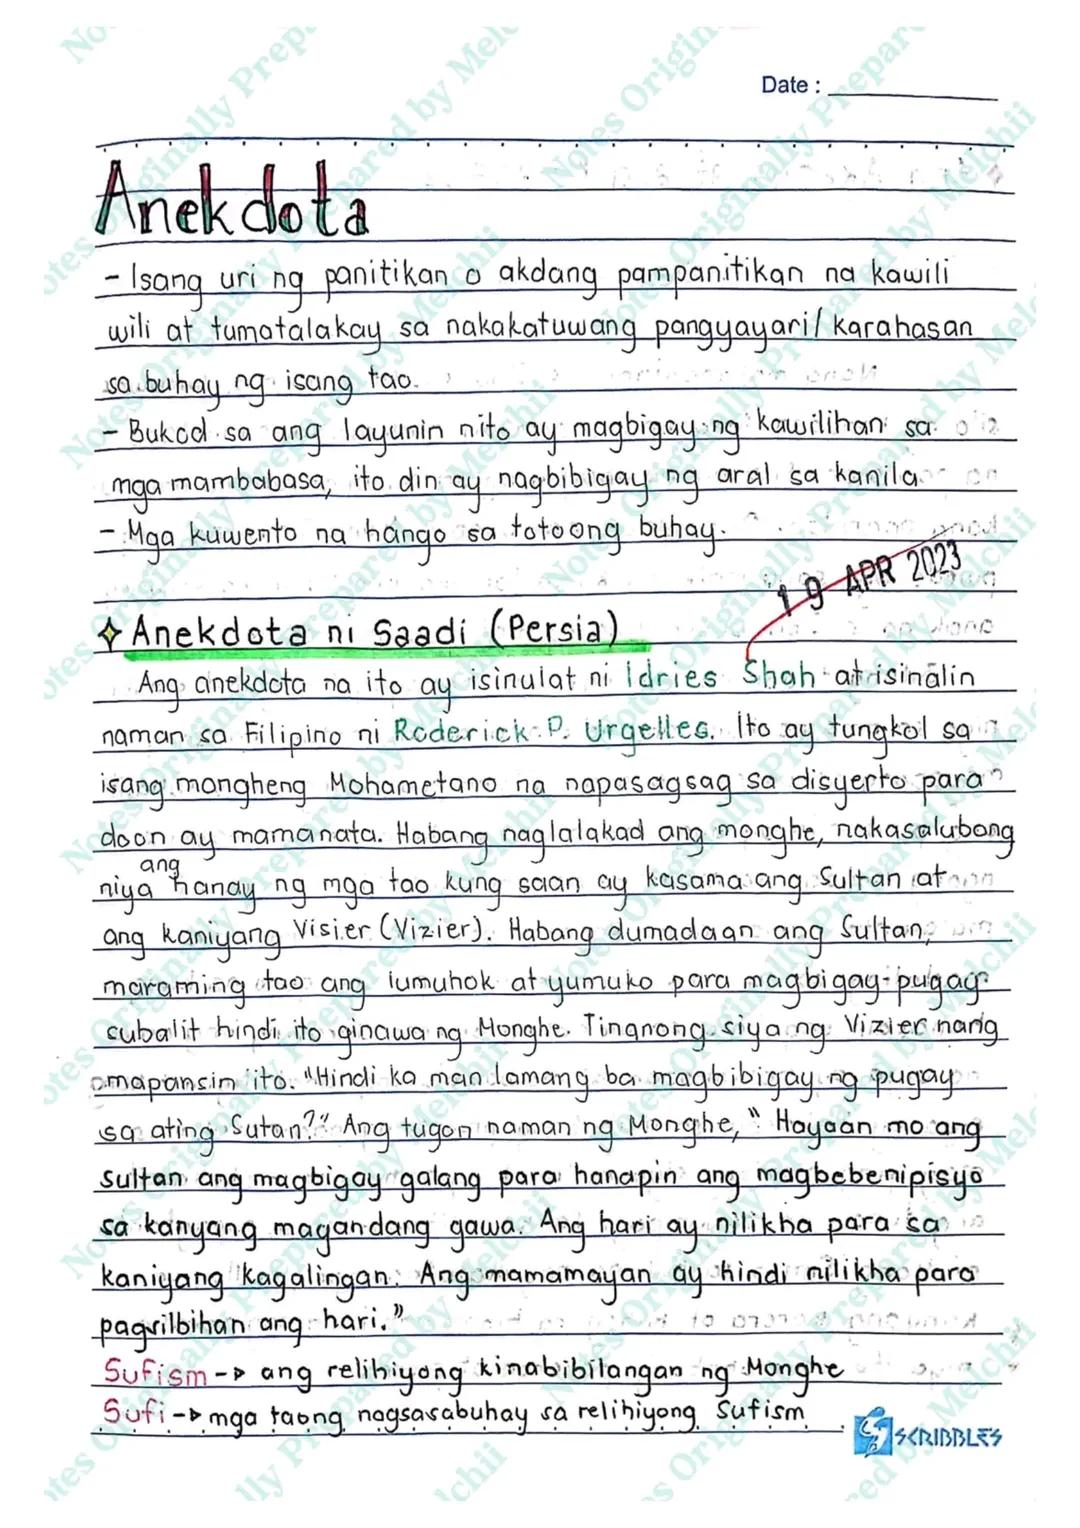 Date :
Anekdota
- Isang uri ng panitikan o akdang pampanitikan na kawili
wili at tumatalakay sa nakakatuwang pangyayari/ karahasan
sa buhay ng isang tao.
- Bukod sa ang layunin nito ay magbigay ng kawilihan sa
mga mambabasa, ito din ay nagbibigay ng aral sa kanila
- Mga kuwento na hango sa totoong buhay.
19 APR 2023
Anekdota ni Saadi (Persia)
Ang anekdota na ito ay isinulat ni Idries Shah at isinalin
naman sa Filipino ni Roderick P. Urgelles. Ito ay tungkol sa
isang mongheng Mohametano na napasagsag sa disyerto para
doon ay mamanata. Habang naglalakad ang monghe, nakasalubong
niya ang hanay ng mga tao kung saan ay kasama ang Sultan at
ang kaniyang Visier (Vizier). Habang dumadaan ang Sultan,
maraming tao ang lumuhok at yumuko para magbigay-pugay
subalit hindi ito ginawa ng Monghe. Tingnong siya ng Vizier nang
mapansin ito. "Hindi ka man lamang ba magbibigay ng pugay
sa ating Sutan?" Ang tugon naman ng Monghe, "Hayaan mo ang
sultan ang magbigay galang para hanapin ang magbebenipisyo
sa kanyang magandang gawa. Ang hari ay nilikha para sa
kaniyang kagalingan. Ang mamamayan ay hindi nilikha para
pagsilbihan ang hari."
Sufism -> ang relihiyong kinabibilangan ng Monghe
Sufi -> mga taong nagsasabuhay sa relihiyong Sufism
SCRIBBLES
Notes Originally Prepared by Melchii